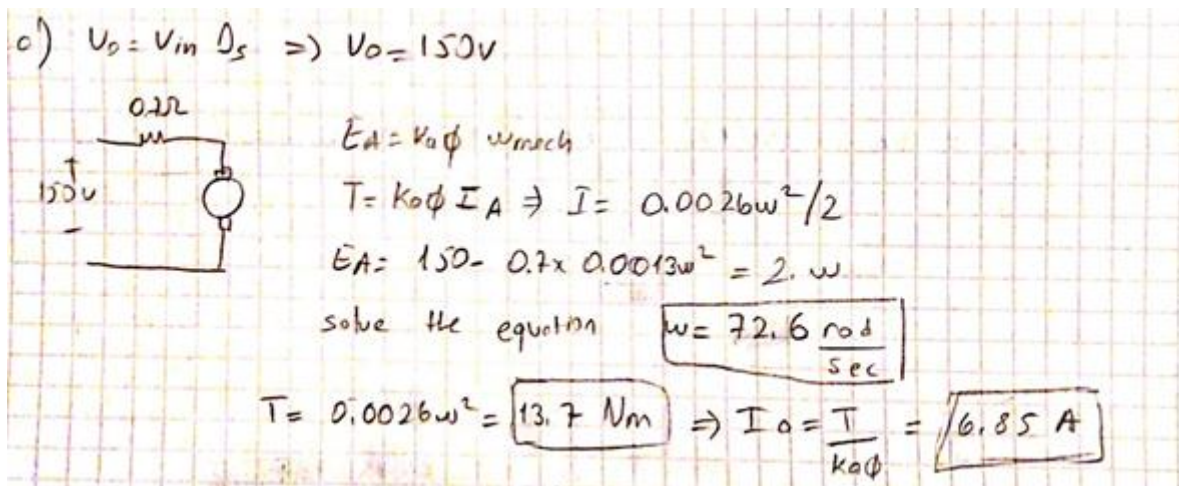 c) Vo = Vin Ds => Vo = 150V
0.7Ω
EA = Kaφ wmech
150v
+
-
T = Kaφ IA ⇒ I = 0.0026w²/2
EA = 150 - 0.7x 0.0013w² = 2. w
solve the equation w = 72.6 rad/sec
T = 0.0026w² = 13.7 Nm => Ia = T/kaφ = 6.85 A